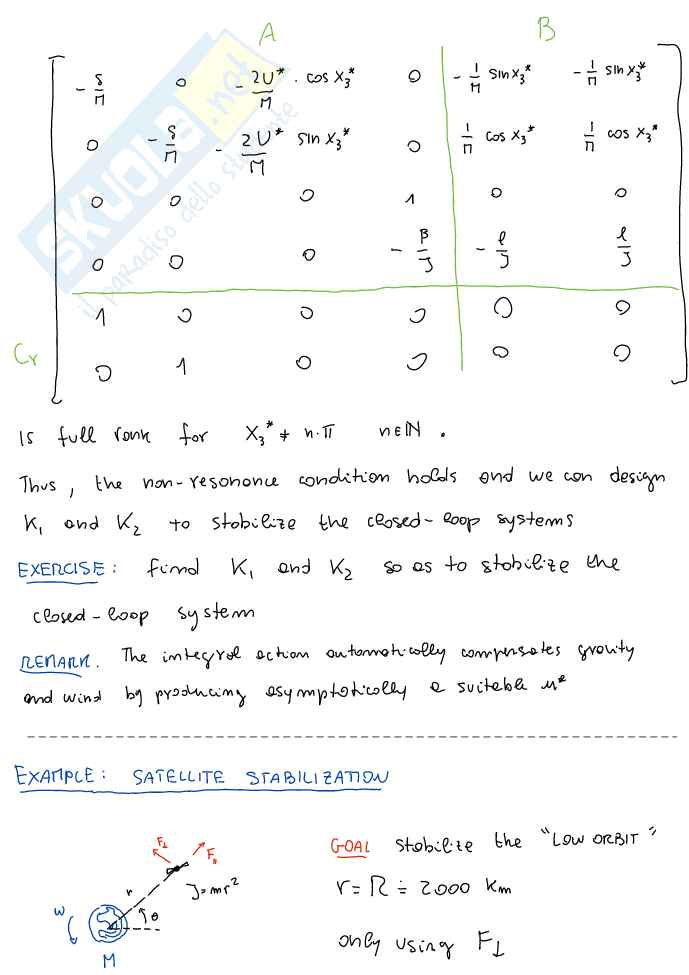 A B
- δ/M 0 - 2U*/M · cos x₃* 0 - 1/M sin x₃* - 1/M sin x₃*
0 - δ/M - 2U*/M sin x₃* 0 1/M cos x₃* 1/M cos x₃*
0 0 0 1 0 0
0 0 0 - β/J - ℓ/J ℓ/J
1 0 0 0 0 0
Cr
0 1 0 0 0 0
is full rank for x₃* ≠ n·π n∈ℕ.
Thus, the non-resonance condition holds and we can design
K₁ and K₂ to stabilize the closed-loop systems
EXERCISE: find K₁ and K₂ so as to stabilize the
closed-loop system
REMARK. The integral action automatically compensates gravity
and wind by producing asymptotically a suitable u*
EXAMPLE: SATELLITE STABILIZATION
F⊥ F∥
r J=mr²
w θ
M
GOAL stabilize the "LOW ORBIT"
r = R ≐ 2000 km
only using F⊥
SKUOLA.net
il paradiso dello studente